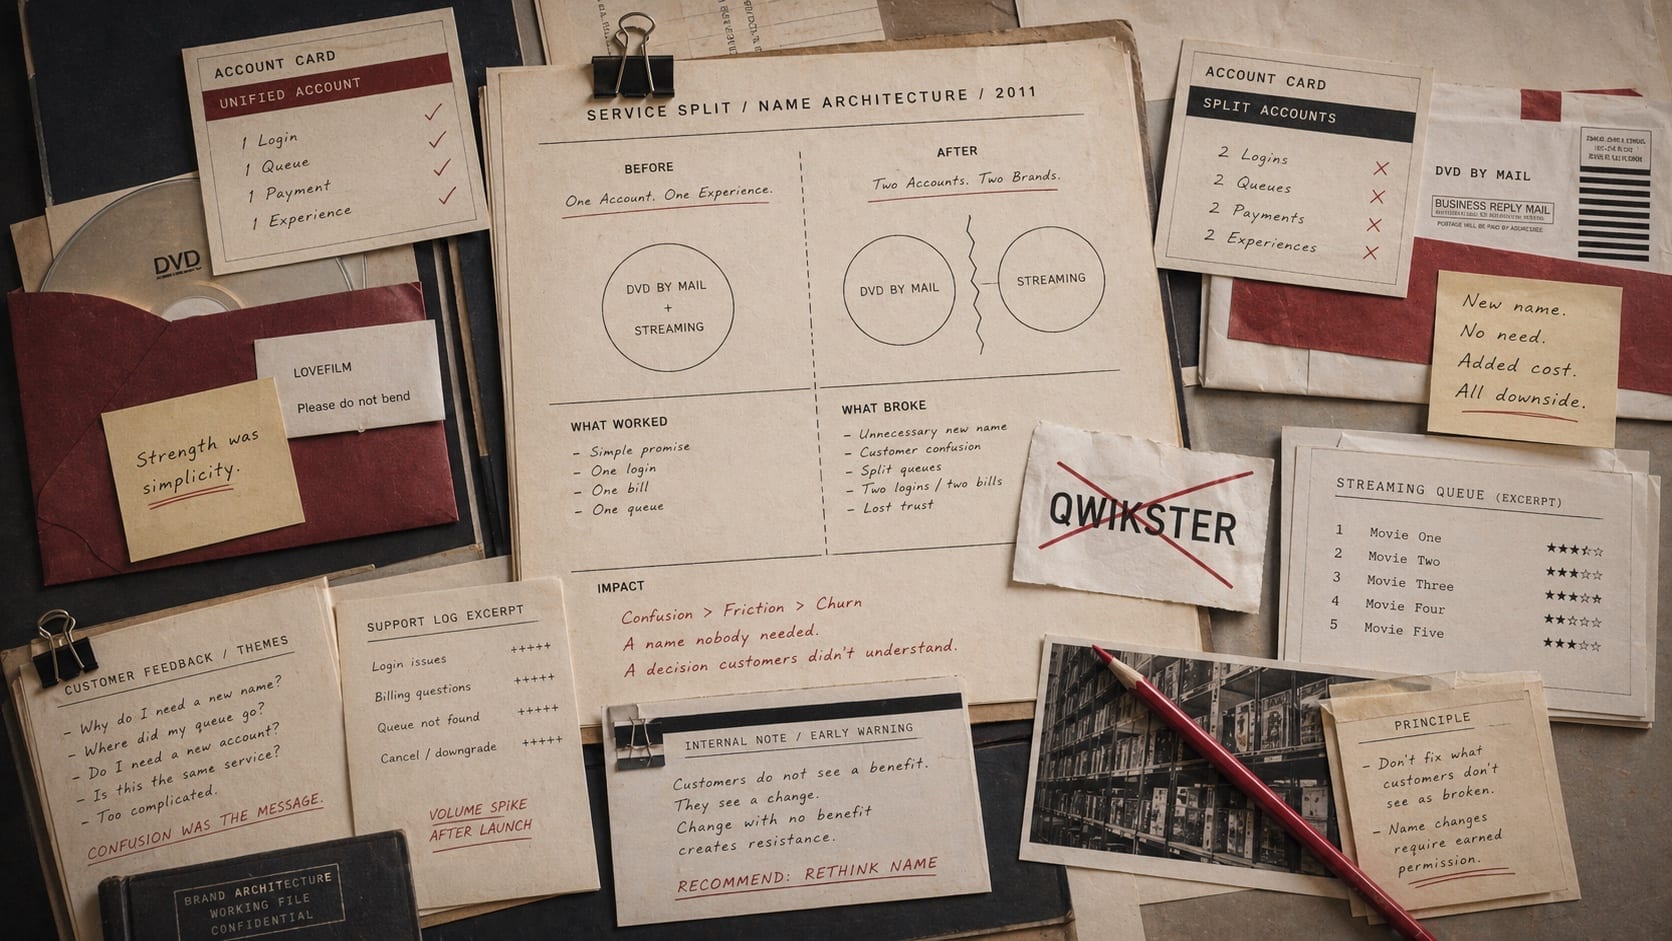 ACCOUNT CARD
UNIFIED ACCOUNT
1 Login
1 Queue
1 Payment
1 Experience
DVD
LOVEFILM
Please do not bend
Strength was
simplicity.
SERVICE SPLIT / NAME ARCHITECTURE / 2011
BEFORE
One Account. One Experience.
DVD BY MAIL
+
STREAMING
AFTER
Two Accounts. Two Brands.
DVD BY MAIL
STREAMING
WHAT WORKED
- Simple promise
- One login
- One bill
- One queue
WHAT BROKE
- Unnecessary new name
- Customer confusion
- Split queues
- Two logins / two bills
- Lost trust
IMPACT
Confusion > Friction > Churn
A name nobody needed.
A decision customers didn't understand.
QWIKSTER
ACCOUNT CARD
SPLIT ACCOUNTS
2 Logins
2 Queues
2 Payments
2 Experiences
DVD BY MAIL
BUSINESS REPLY MAIL
POSTAGE WILL BE PAID BY ADDRESSEE
New name.
No need.
Added cost.
All downside.
STREAMING QUEUE (EXCERPT)
1 Movie One ★★★⯪☆
2 Movie Two ★★★☆☆
3 Movie Three ★★★☆★
4 Movie Four ★★☆☆☆
5 Movie Five ★★★☆☆
CUSTOMER FEEDBACK / THEMES
- Why do I need a new name?
- Where did my queue go?
- Do I need a new account?
- Is this the same service?
- Too complicated.
CONFUSION WAS THE MESSAGE.
SUPPORT LOG EXCERPT
Login issues +++++
Billing questions +++++
Queue not found +++++
Cancel / downgrade +++++
VOLUME SPIKE
AFTER LAUNCH
BRAND ARCHITECTURE
WORKING FILE
CONFIDENTIAL
INTERNAL NOTE / EARLY WARNING
Customers do not see a benefit.
They see a change.
Change with no benefit
creates resistance.
RECOMMEND: RETHINK NAME
PRINCIPLE
- Don't fix what
customers don't
see as broken.
- Name changes
require earned
permission.